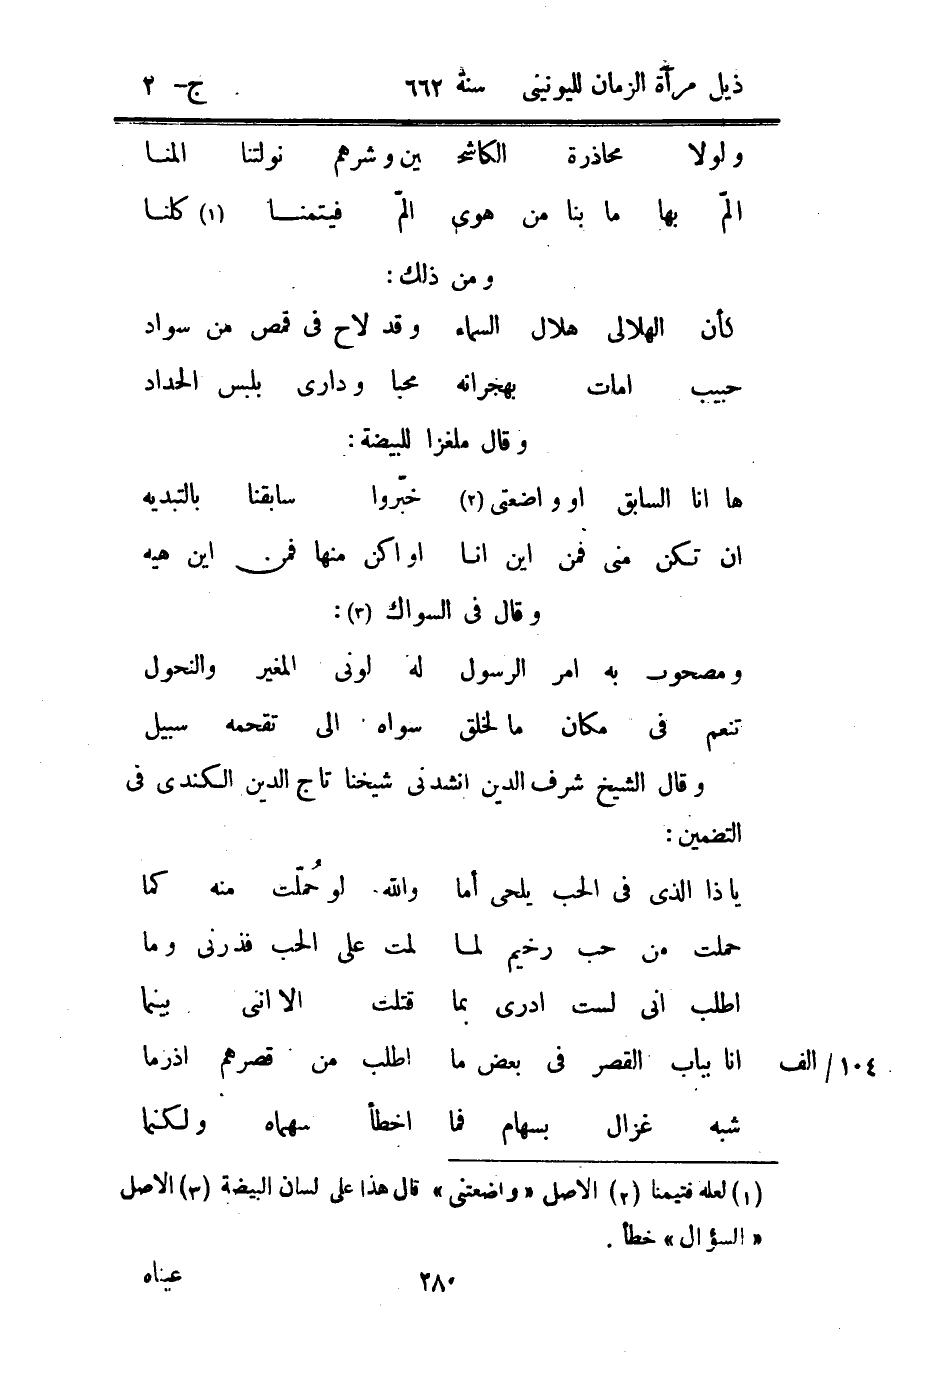 ذيل مرآة الزمان لليونينى سنة ٦٦٢ ج- ٢
و لولا محاذرة الكاشحـ ين و شرهم نولتنا المنـا
المّ بها ما بنا من هوى المّ فيتمنـا (١) كلنـا
و من ذلك :
كأن الهلالى هلال السماء و قد لاح فى قمص من سواد
حبيب امات بهجرانه محبا و دارى بلبس الحداد
و قال ملغزا للبيضة :
ها انا السابق او واضعتى (٢) خبّروا سابقنا بالتبديه
ان تـكن منى فمن اين انـا او اكن منها فمن اين هيه
و قال فى السواك (٣) :
و مصحوب به امر الرسول له لونى المغير والنحول
تنعم فى مكان ما لخلق سواه الى تقحمه سبيل
و قال الشيخ شرف الدين انشدنى شيخنا تاج الدين الكندى فى
التضمين :
يا ذا الذى فى الحب يلحى أما والله لو حُمّلت منه كما
حملت من حب رخيم لمـا لمت على الحب فذرنى و ما
اطلب انى لست ادرى بما قتلت الا اننى بينما
انا بباب القصر فى بعض ما اطلب من قصرهم اذ رما ١٠٤/ الف
شبه غزال بسهام فما اخطأ سهماه ولـكنما
(١) لعله فتيمنا (٢) الاصل «واضعتنى» قال هذا على لسان البيضة (٣) الاصل
«السؤال» خطأ .
٢٨٠ عيناه